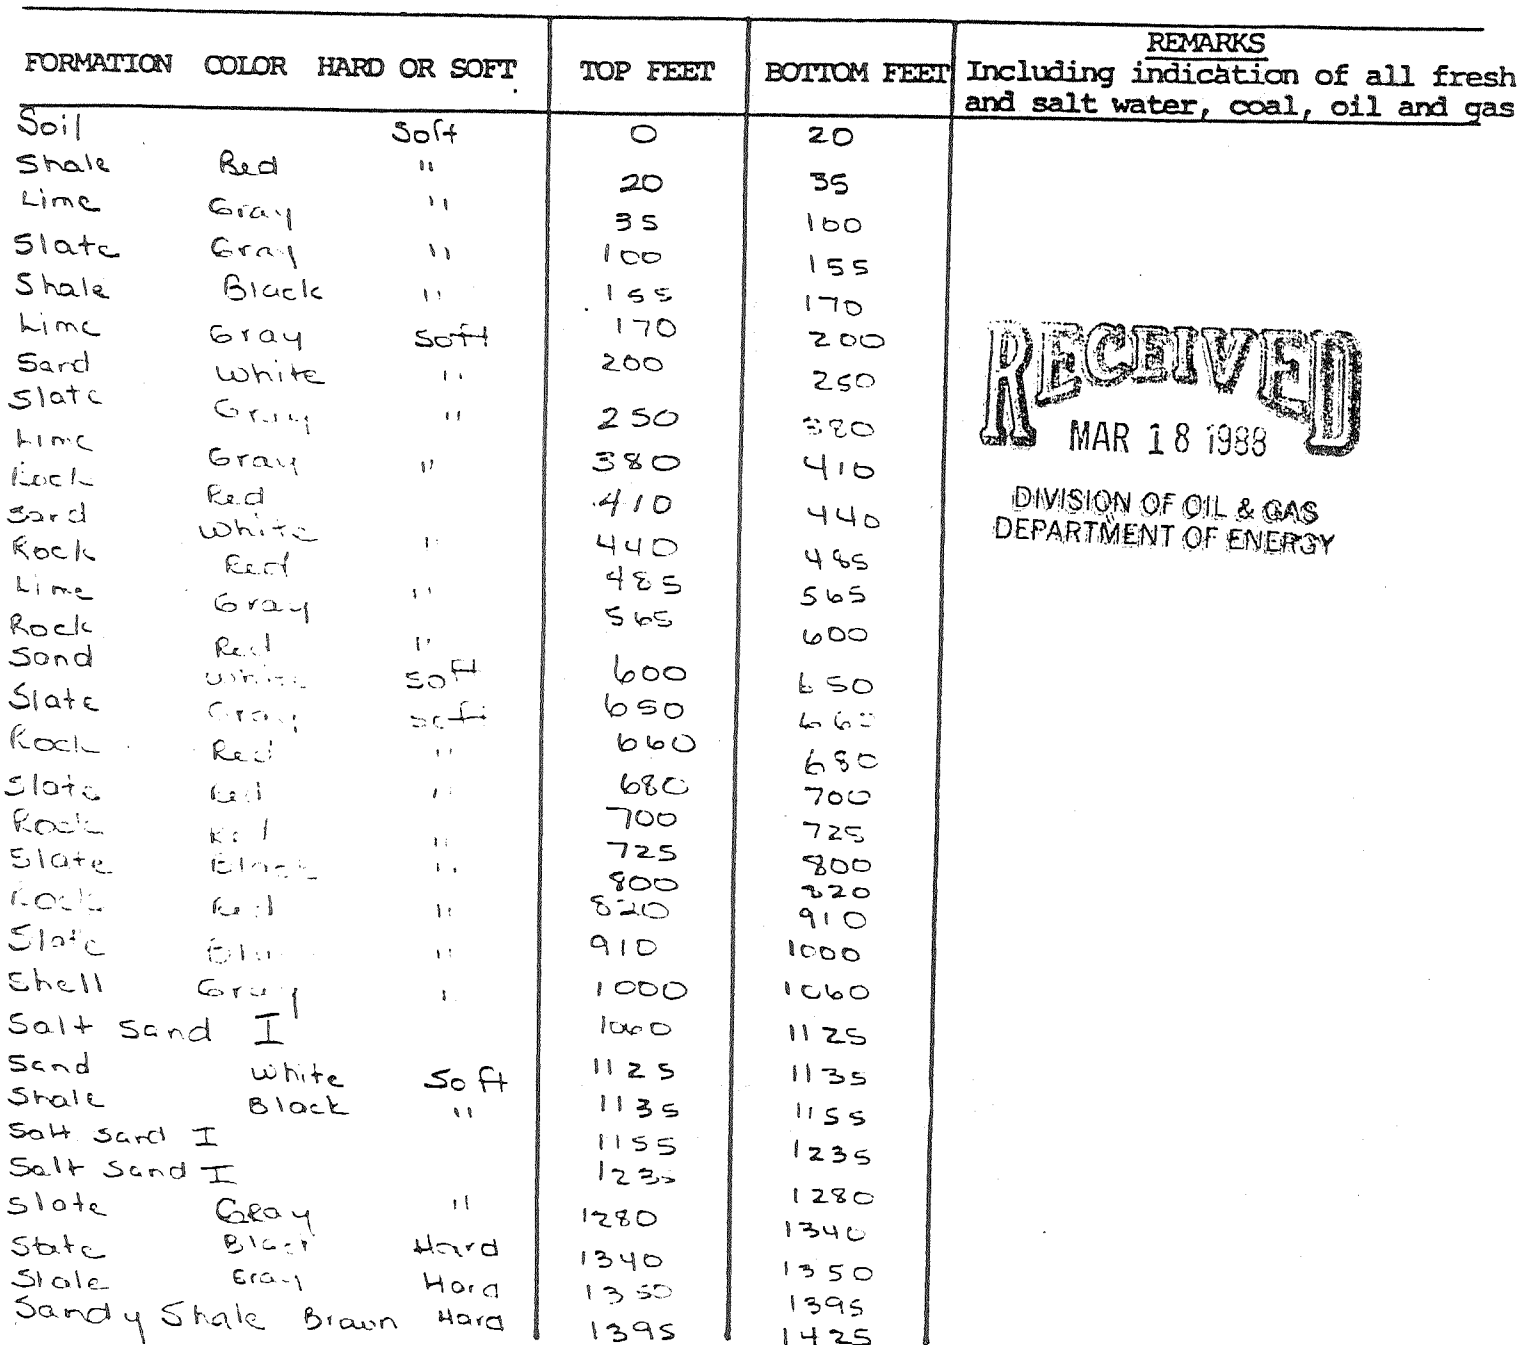 REMARKS
FORMATION COLOR HARD OR SOFT TOP FEET BOTTOM FEET Including indication of all fresh
and salt water, coal, oil and gas
Soil Soft 0 20
Shale Red " 20 35
Lime Gray " 35 100
Slate Gray " 100 155
Shale Black " 155 170
Lime Gray Soft 170 200
Sand White " 200 250
Slate Gray " 250 380
Lime Gray " 380 410
Rock Red 410 440
Sand White " 440 485
Rock Red 485 565
Lime Gray " 565 600
Rock Red "
Sand White Soft 600 650
Slate Gray soft 650 660
Rock Red " 660 680
Slate Red " 680 700
Rock Red " 700 725
Slate Black " 725 800
800 820
Rock Red " 820 910
Slate " 910 1000
Shell Gray " 1000 1060
Salt Sand I 1060 1125
Sand White Soft 1125 1135
Shale Black " 1135 1155
Salt Sand I 1155 1235
Salt Sand I 1235 1280
Slate GRay " 1280 1340
Slate Black Hard 1340 1350
Gray Hard 1350 1395
Sandy Shale Brown Hard 1395 1425
RECEIVED
MAR 18 1988
DIVISION OF OIL & GAS
DEPARTMENT OF ENERGY